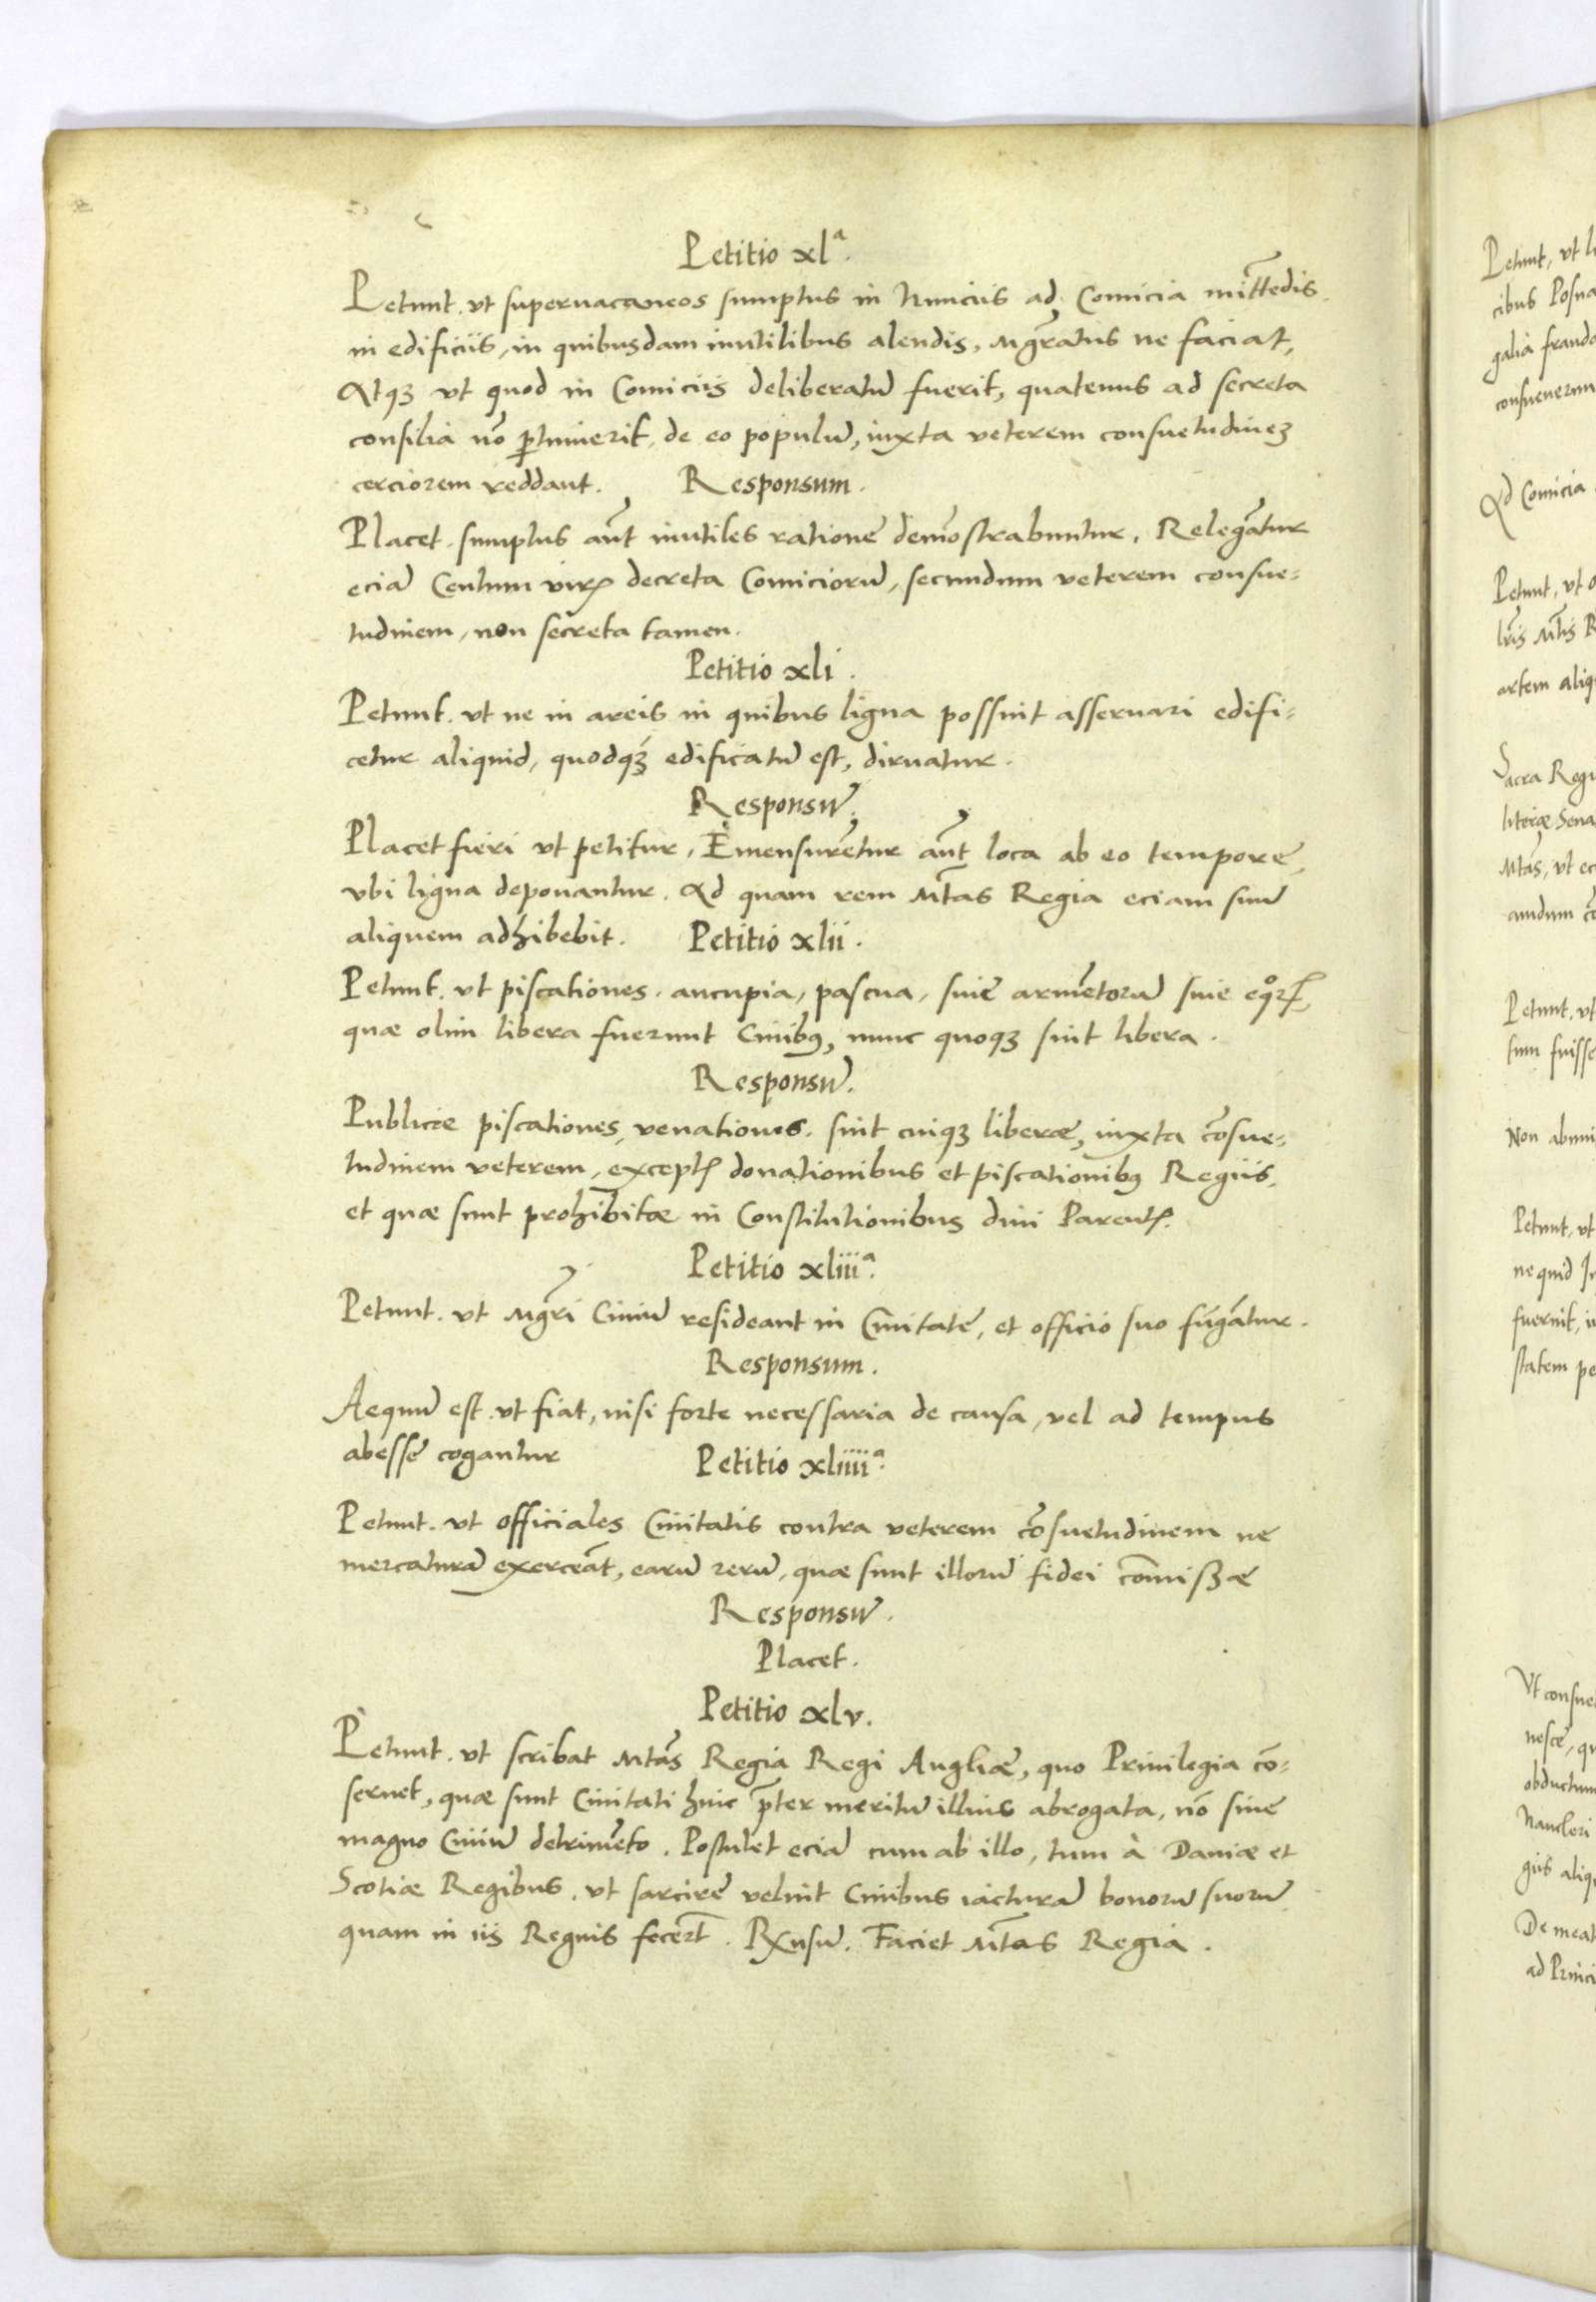 Petitio xlª.
Petunt. vt superuacaneos sumptus in Nunciis ad Comicia mitt̃edis
in edificiis, in quibusdam inutilibus alendis, Mgr̃atus ne faciat,
Atqꝫ vt quod in Comiciis deliberatũ fuerit, quatenus ad secreta
consilia nõ ꝑtinuerit, de eo populũ, iuxta veterem consuetudineꝫ
cerciorem reddant. Responsum.
Placet. sumptus aũt inutiles ratione demõstrabuntur. Relegãtur
eciã Centum virꝝ decreta Comiciorũ, secundum veterem consue-
tudinem, non secreta tamen.
Petitio xli.
Petunt. vt ne in areis in quibus ligna possint asseruari edifi-
cetur aliquid, quodqꝫ edificatũ est, diruatur.
Responsũ.
Placet fieri vt petitur, Emensurẽtur aũt loca ab eo tempore,
vbi ligna deponantur. Ad quam rem Mtãs Regia eciam suũ
aliquem adhibebit. Petitio xlii.
Petunt. vt piscationes. aucupia, pascua, siue armẽtorũ siue eqͦrꝝ,
quae olim libera fuerunt Ciuibꝰ, nunc quoqꝫ sint libera.
Responsũ.
Publicæ piscationes, venationes. sint cuiqꝫ liberæ, iuxta cõsue-
tudinem veterem, exceptꝭ donationibus et piscationibꝰ Regiis,
et quæ sunt prohibitæ in Constitutionibus diui Parentꝭ.
Petitio xliiiª.
Petunt. vt Mgr̃i Ciuiũ resideant in Ciuitate, et officio suo fũgãtur.
Responsum.
Aequũ est. vt fiat, nisi forte necessaria de causa, vel ad tempus
abesse cogantur Petitio xliiiiª.
Petunt. vt officiales Ciuitatis contra veterem cõsuetudinem ne
mercaturã exerceãt, earũ rerũ, quæ sunt illorũ fidei cõmißæ
Responsũ.
Placet.
Petitio xlv.
Petunt. vt scribat Mtãs Regia Regi Angliæ, quo Priuilegia cõ-
seruet, quæ sunt Ciuitati huic p̃ter meritũ illius abrogata, nõ sine
magno Ciuiũ detrimẽto. Postulet eciã cum ab illo, tum à Daniæ et
Scotiæ Regibus. vt sarcire velint Ciuibus iacturã bonorũ suorũ
quam in iis Regnis fecer̃t. Rx̃nsũ. Faciet Mtãs Regia.